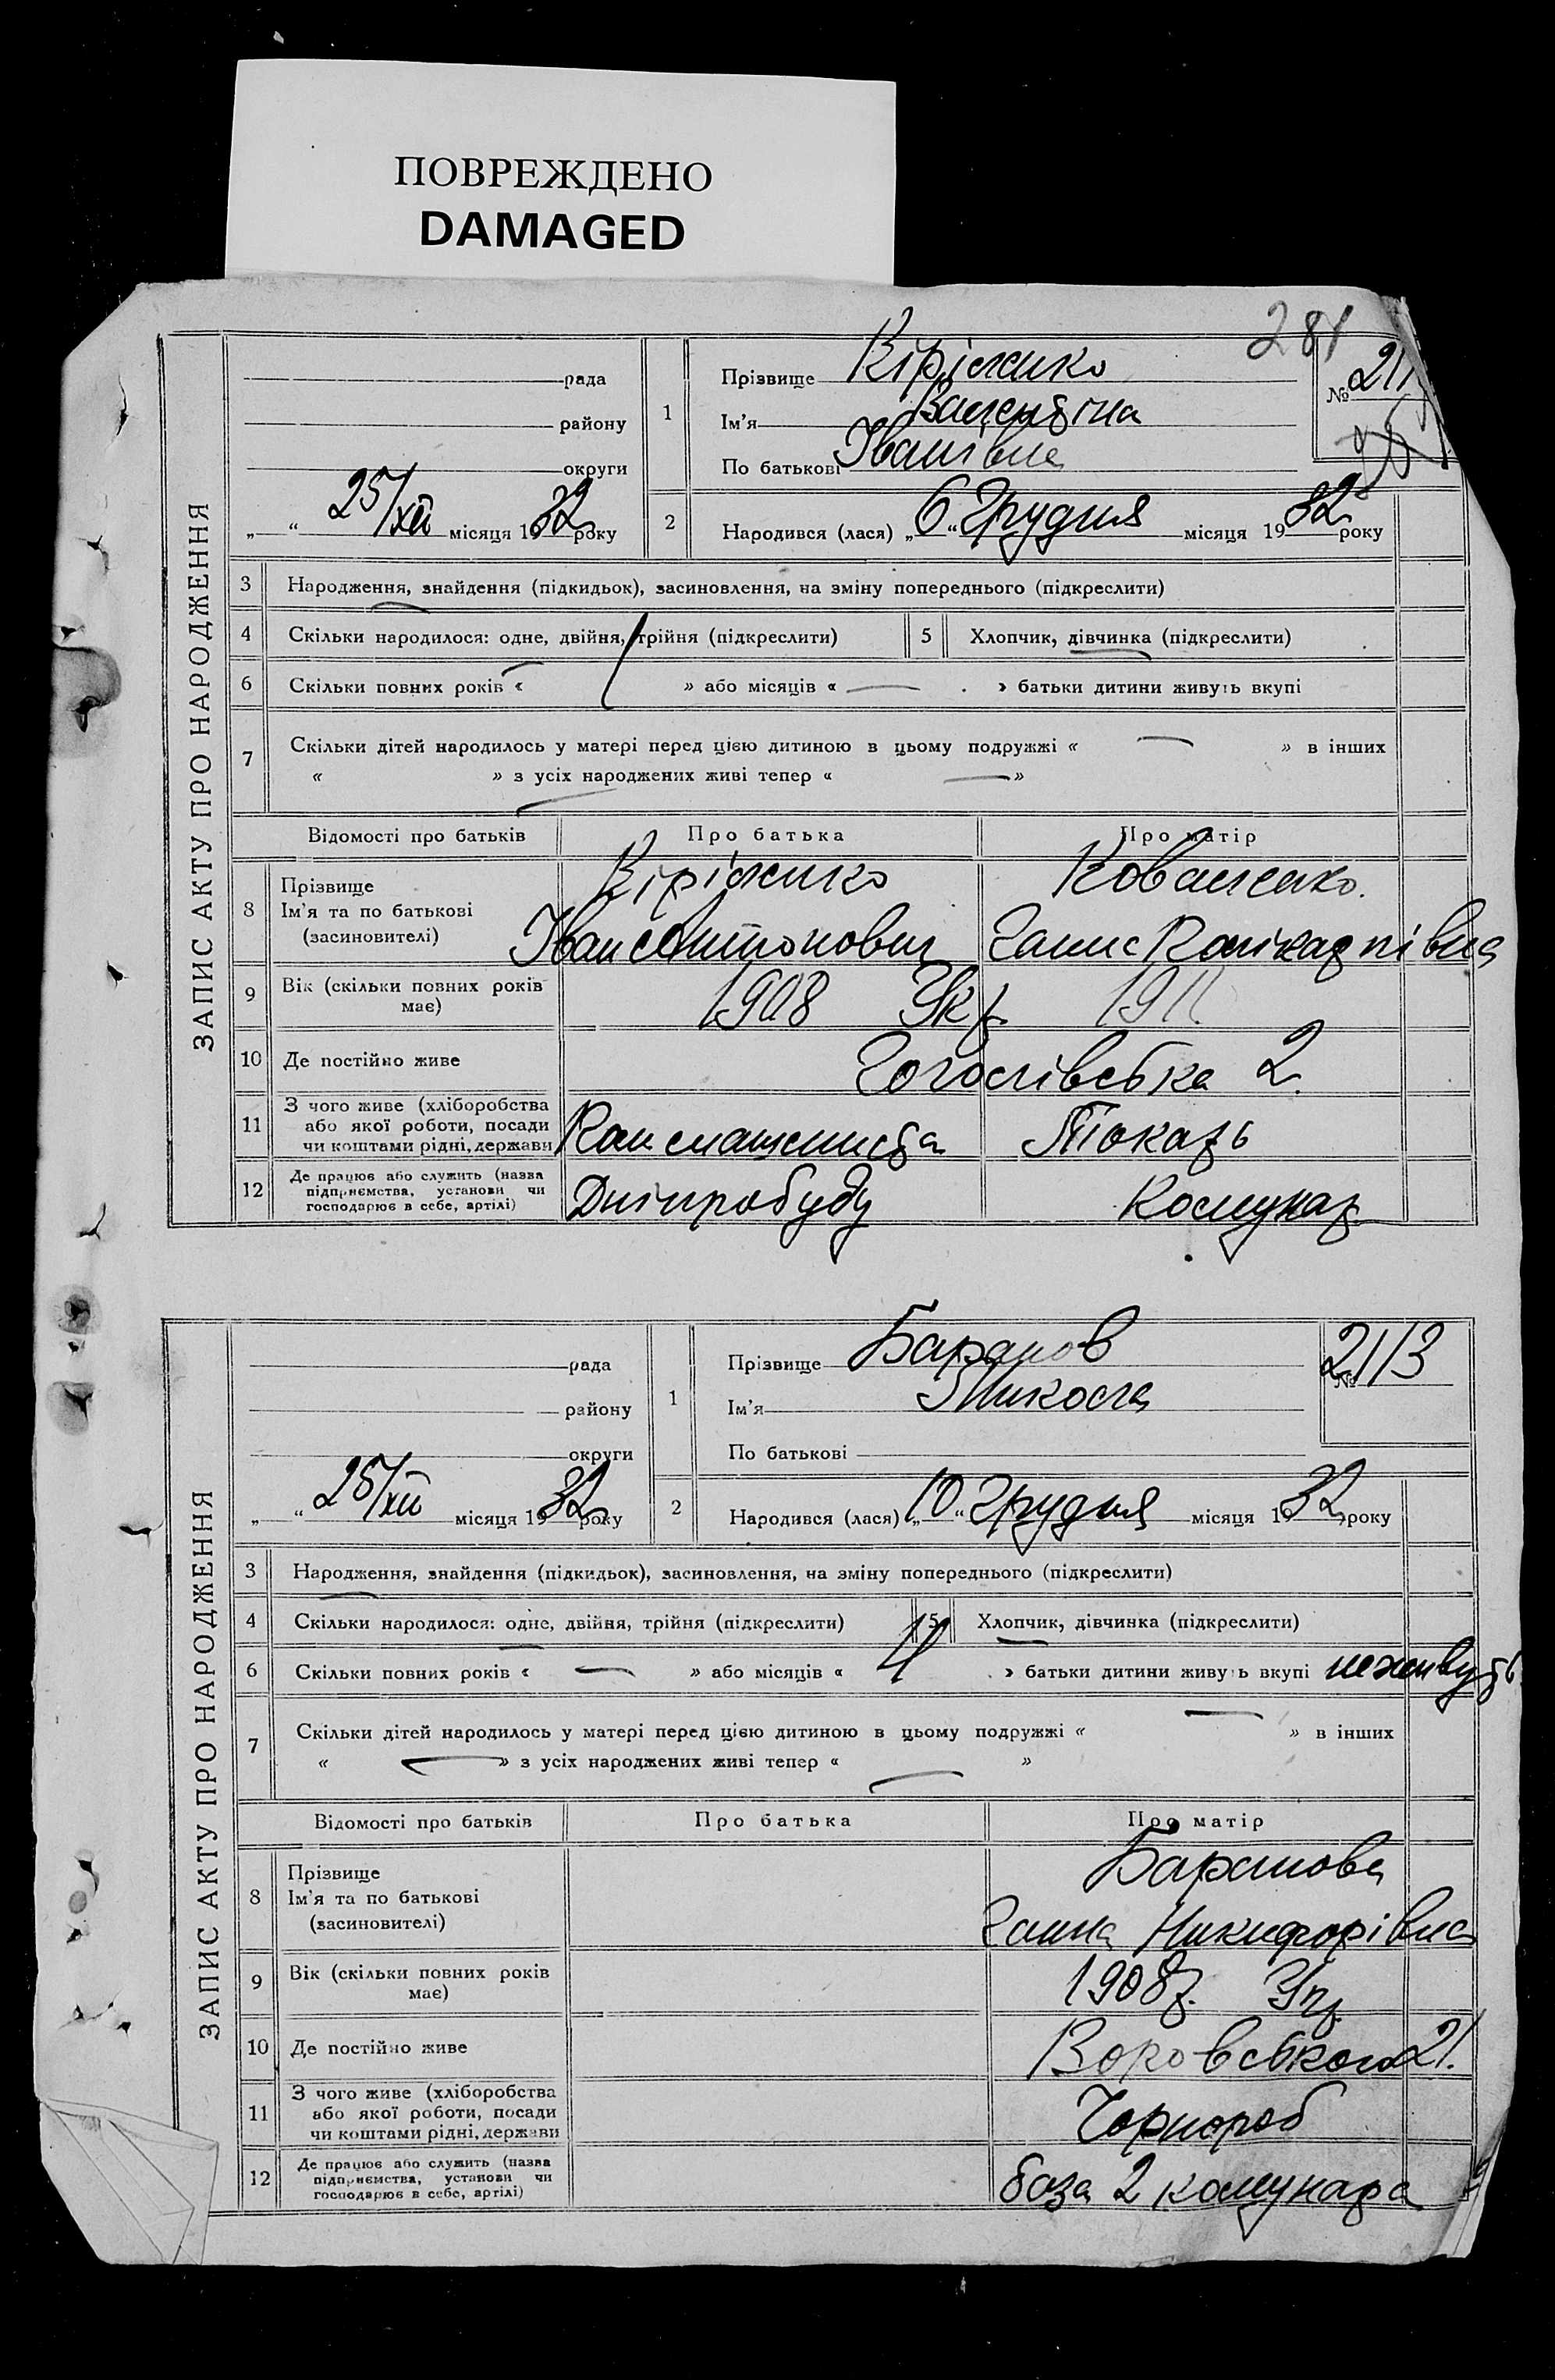 ПОВРЕЖДЕНО
DAMAGED
281
ЗАПИС АКТУ ПРО НАРОДЖЕННЯ
рада
району
округи
„ “ 25/XII місяця 1932 року
1
Прізвище Кіріленко
Ім'я Валентіна
По батькові Іванівна
№ 211
2
Народився (лася) „6“ Грудня місяця 1932 року
3 Народження, знайдення (підкидьок), засиновлення, на зміну попереднього (підкреслити)
4 Скільки народилося: одне, двійня, трійня (підкреслити) 5 Хлопчик, дівчинка (підкреслити)
6 Скільки повних років « » або місяців « — » батьки дитини живуть вкупі
7 Скільки дітей народилось у матері перед цією дитиною в цьому подружжі « — » в інших
« » з усіх народжених живі тепер « — »
Відомості про батьків Про батька Про матір
8 Прізвище
Ім'я та по батькові
(засновителі)
Кіріленко Коваленко.
Іван Антонович Ганна Полікарпівна
9 Вік (скільки повних років має) 1908 Укр. 1911
10 Де постійно живе Гоголівська 2.
11 З чого живе (хліборобства
або якої роботи, посади
чи коштами рідні, держави Токарь
12 Де працює або служить (назва
підприємства, установи чи
господарює в себе, артілі) Дніпробуду Комунар
ЗАПИС АКТУ ПРО НАРОДЖЕННЯ
рада
району
округи
„ “ 25/XII місяця 1932 року
1
Прізвище Баранов
Ім'я Микола
По батькові
№ 2113
2
Народився (лася) „10“ Грудня місяця 1932 року
3 Народження, знайдення (підкидьок), засиновлення, на зміну попереднього (підкреслити)
4 Скільки народилося: одне, двійня, трійня (підкреслити) 5 Хлопчик, дівчинка (підкреслити)
6 Скільки повних років « — » або місяців « » батьки дитини живуть вкупі не живуть
7 Скільки дітей народилось у матері перед цією дитиною в цьому подружжі « — » в інших
« — » з усіх народжених живі тепер « — »
Відомості про батьків Про батька Про матір
8 Прізвище
Ім'я та по батькові
(засиновителі)
Баранова
Ганна Никифорівна
9 Вік (скільки повних років має) 1908 р. Укр.
10 Де постійно живе Воровського 21.
11 З чого живе (хліборобства
або якої роботи, посади
чи коштами рідні, держави Чорнороб
12 Де працює або служить (назва
підприємства, установи чи
господарює в себе, артілі) база 2 комунара